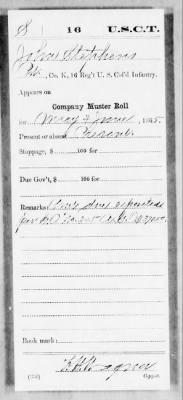 S 16 U.S.C.T.
John Stephens
Pvt., Co. K, 16 Reg't U. S. Col'd Infantry.
Appears on
Company Muster Roll
for May & June, 1865.
Present or absent Present
Stoppage, $ 100 for
Due Gov't, $ 100 for
Remarks:
Book mark:
Copyist.